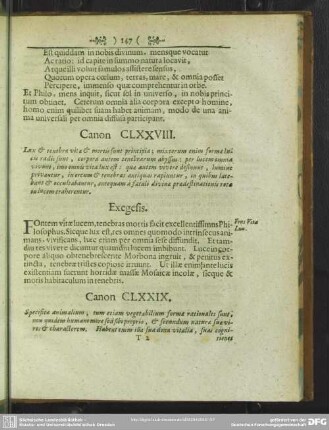 147
Est quiddam in nobis divinum, mensque vocatur
Ac ratio: id capite in summo natura locavit,
Atque illi voluit famulos assistere sensus,
Quorum opera cœlum, terras, mare, & omnia posset
Percipere, immenso quæ comprehenduntur in orbe.
Et Philo, mens inquit, sicut sol in universo, in nobis princi-
tum obtinet. Ceterum omnia alia corpora excepto homine,
homo enim quilibet suam habet animam, modo de una ani-
ma universali per omnia diffusa participant.
Canon CLXXVIII.
Lux & tenebræ vitæ & mortis sunt principia; mixtorum enim forma lu-
cis radii sunt, corpora autem tenebrarum abyssus: per lucem omnia
vivunt, imo omnis vita lux est: quæ autem vivere desinunt, lumine
privantur, inertem & tenebras antiquas rapiuntur, in quibus late-
bant & occultabantur, antequam a fatali divinæ prædestinationis rota
in lucem traherentur.
Exegesis.
FOntem vitæ lucem, tenebras mortis facit excellentissimus Phi-
losophus. Sicque lux est, res omnes quomodo intrinsecus ani-
mans, vivificans, hæc enim per omnia sese diffundit. Et tam-
Fons Vitæ
Lux.
diu res vivere dicuntur quamdiu lucem imbibunt. Luce in
tempore aliquo obtenebrescente Morbona ingruit, & penitus ex-
tincta, tenebræ tristes copiose irruunt. Ut illæ enim sine lucis
existentiam fuerunt horridæ massæ Mosaicæ incolæ, sicque &
moris habitaculum in tenebris.
Canon CLXXIX.
Specifica animalium, tum etiam vegetabilium forma rationales sunt,
non quidem humano more sed suo proprio, & secundum naturæ suæ vi-
res & characterem. Habent enim illa sua dona vitalia, suas cogni-
T 2
tiones